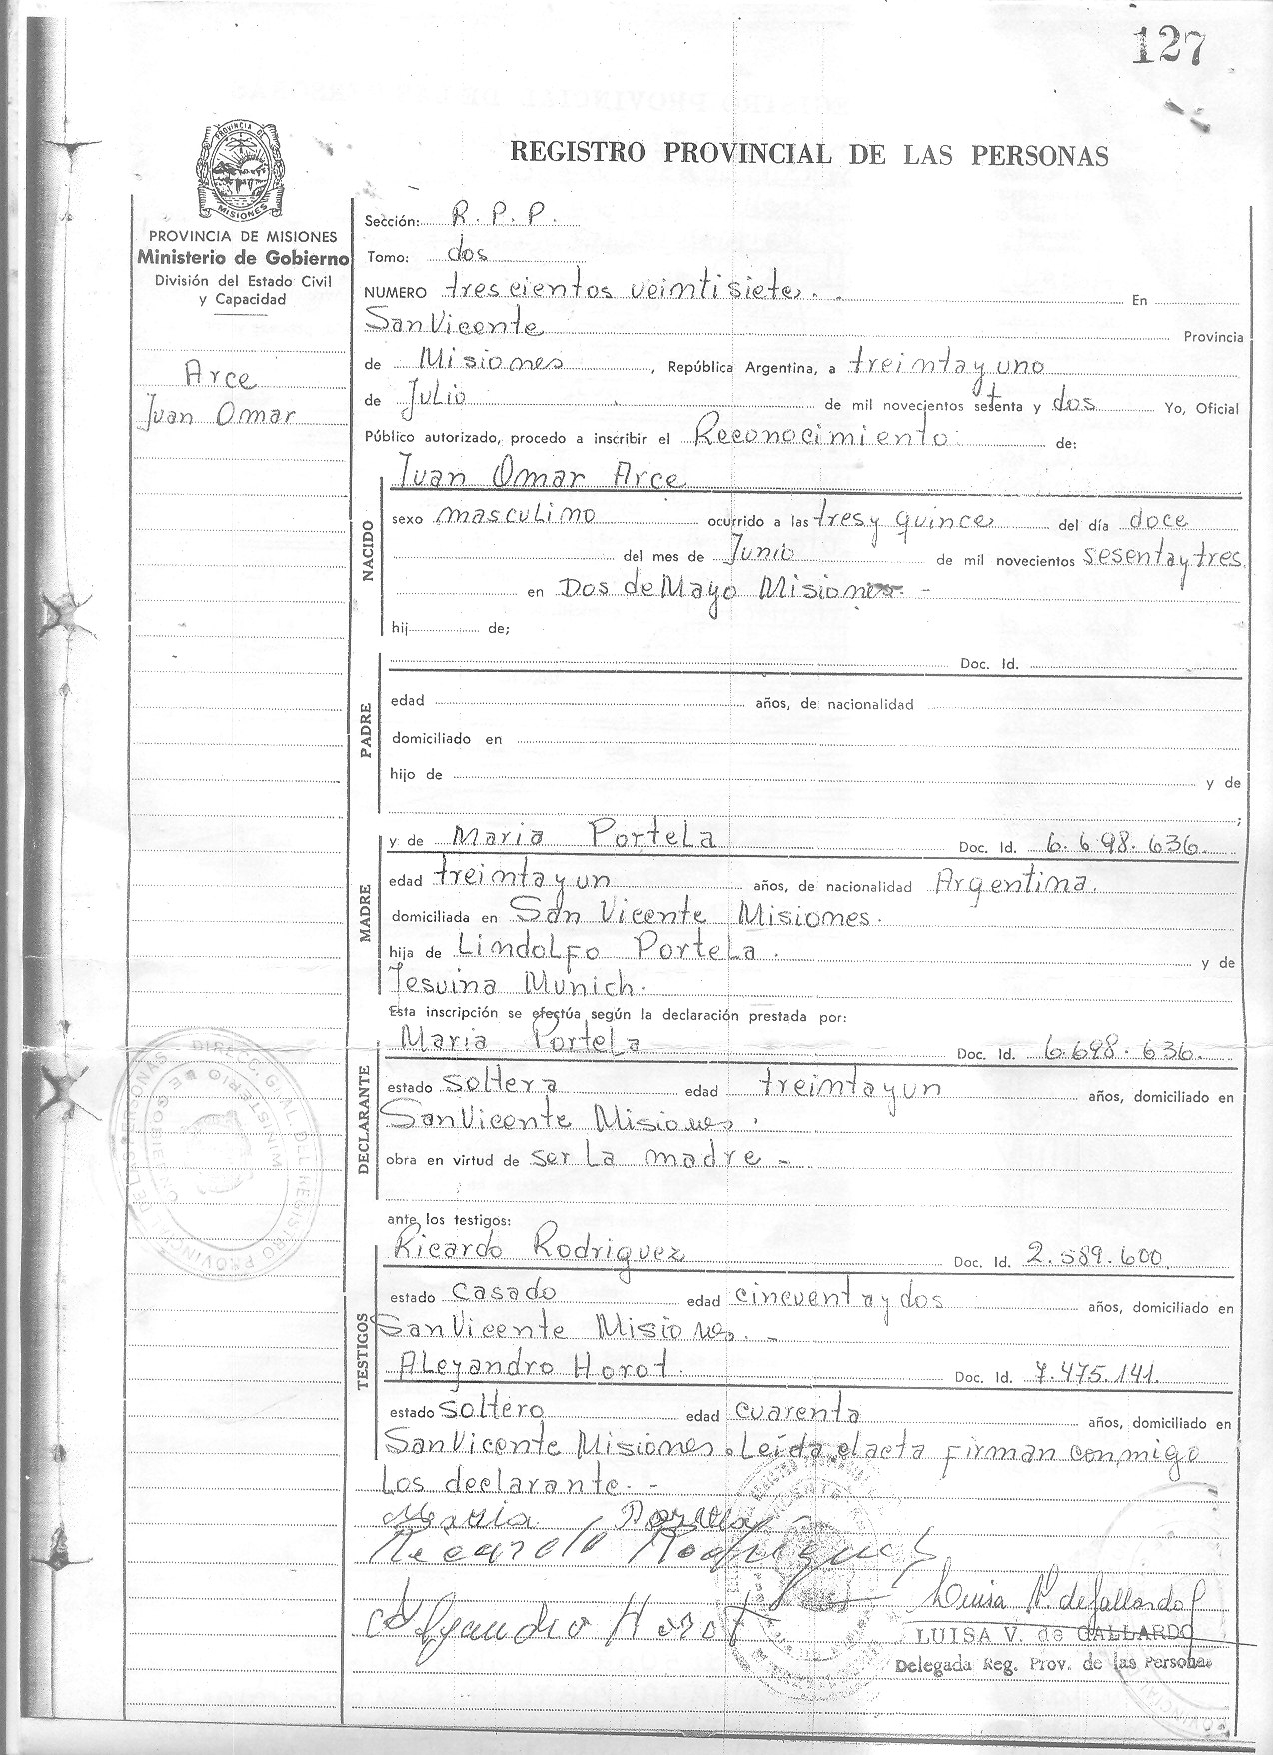 127
PROVINCIA DE
MISIONES
REGISTRO PROVINCIAL DE LAS PERSONAS
PROVINCIA DE MISIONES
Ministerio de Gobierno
División del Estado Civil
y Capacidad
Arce
Juan Omar
Sección: R. P. P.
Tomo: dos
NUMERO trescientos veintisiete. En
San Vicente Provincia
de Misiones, República Argentina, a treinta y uno
de Julio de mil novecientos setenta y dos Yo, Oficial
Público autorizado, procedo a inscribir el Reconocimiento de:
NACIDO
Juan Omar Arce
sexo masculino ocurrido a las tres y quince del día doce
del mes de Junio de mil novecientos sesenta y tres
en Dos de Mayo Misiones -
hij de;
PADRE
Doc. Id.
edad años, de nacionalidad
domiciliado en
hijo de y de
;
MADRE
y de Maria Portela Doc. Id. 6.698.636.
edad treinta y un años, de nacionalidad Argentina.
domiciliada en San Vicente Misiones.
hija de Lindolfo Portela. y de
Jesuina Munich.
Esta inscripción se efectúa según la declaración prestada por:
DECLARANTE
Maria Portela Doc. Id. 6.698.636.
estado soltera edad treinta y un años, domiciliado en
San Vicente Misiones.
obra en virtud de ser la madre -
ante los testigos:
TESTIGOS
Ricardo Rodriguez Doc. Id. 2.589.600.
estado casado edad cincuenta y dos años, domiciliado en
San Vicente Misiones. -
Alejandro Horot. Doc. Id. 7.475.141.
estado soltero edad cuarenta años, domiciliado en
San Vicente Misiones. Leída el acta firman conmigo
los declarante. -
Maria Portela
Ricardo Rodriguez
Alejandro Horot
Luisa V. de Gallardo
LUISA V. de GALLARDO
Delegada Reg. Prov. de las Personas